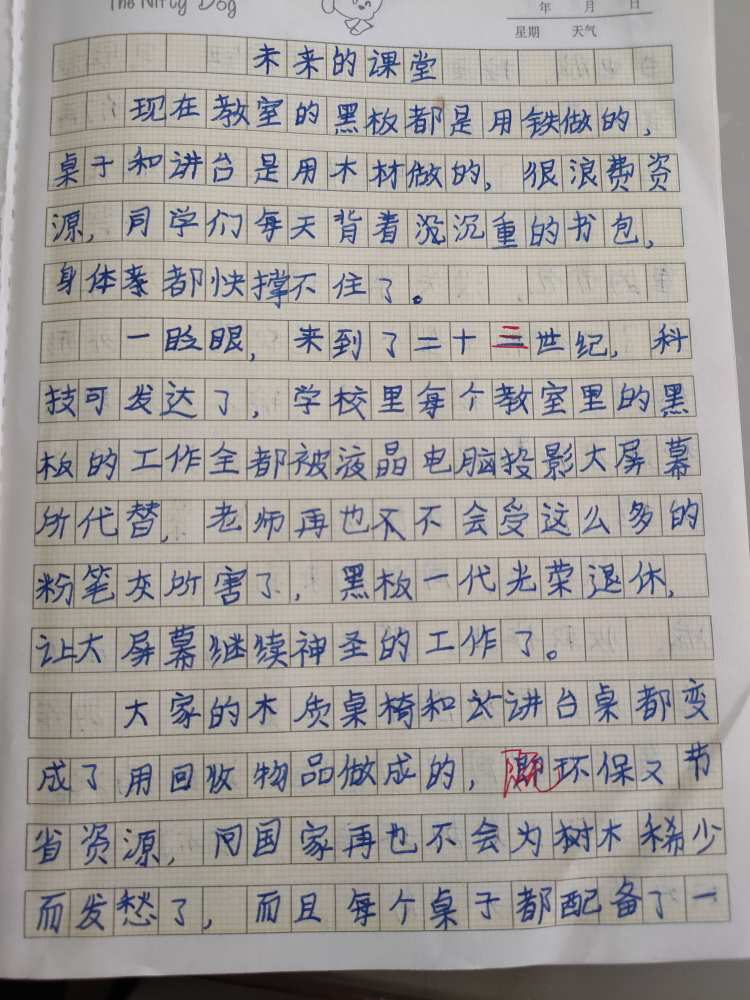 The Nifty Dog
年 月 日
星期 天气
未来的课堂
现在教室的黑板都是用铁做的，
桌子和讲台是用木材做的，狠浪费资
源，同学们每天背着沉重的书包，
身体都快撑不住了。
一眨眼，来到了二十三世纪，科
技可发达了，学校里每个教室里的黑
板的工作全都被液晶电脑投影大屏幕
所代替，老师再也不会受这么多的
粉笔灰所害了，黑板一代光荣退休，
让大屏幕继续神圣的工作了。
大家的木质桌椅和讲台桌都变
成了用回收物品做成的，环保又节
省资源，问国家再也不会为树木稀少
而发愁了，而且每个桌子都配备了一